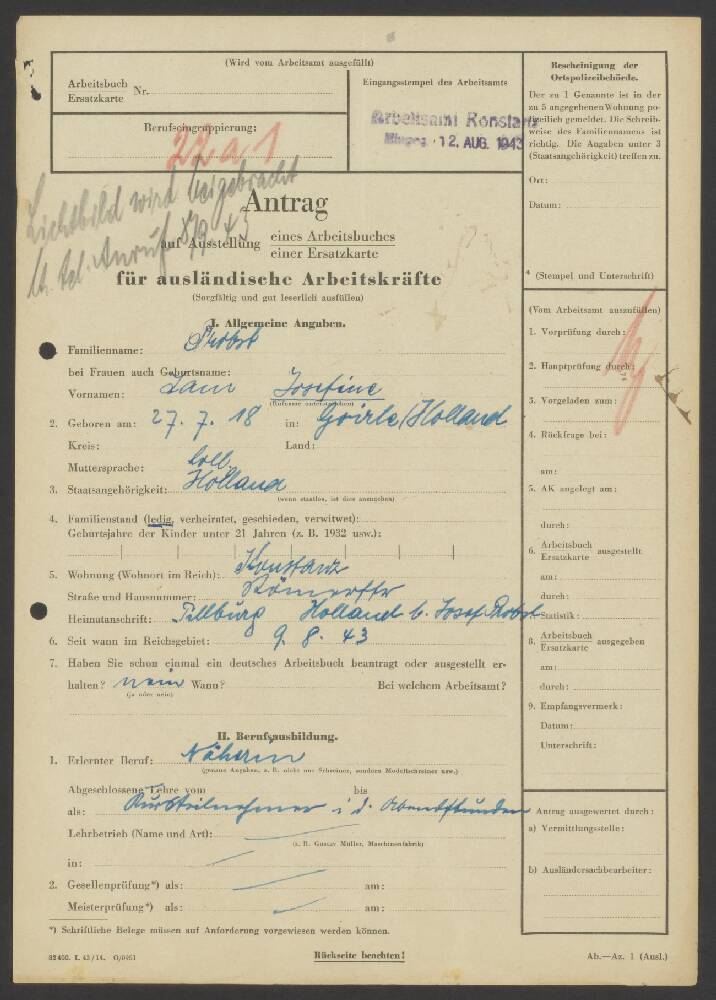 (Wird vom Arbeitsamt ausgefüllt)
Arbeitsbuch
Ersatzkarte Nr.
Berufsgruppierung:
22 a 1
Eingangsstempel des Arbeitsamts
Arbeitsamt Konstanz
Eingeg. 12. AUG. 1943
Bescheinigung der
Ortspolizeibehörde.
Der zu 1 Genannte ist in der
zu 5 angegebenen Wohnung po-
lizeilich gemeldet. Die Schreib-
weise des Familiennamens ist
richtig. Die Angaben unter 3
(Staatsangehörigkeit) treffen zu.
Ort:
Datum:
* (Stempel und Unterschrift)
Lichtbild wird beigebracht
lt. tel. Anruf 8/9 43
Antrag
auf Ausstellung eines Arbeitsbuches
einer Ersatzkarte
für ausländische Arbeitskräfte
(Sorgfältig und gut leserlich ausfüllen)
I. Allgemeine Angaben.
1. Familienname: Probst
bei Frauen auch Geburtsname:
Vornamen: Josefine
(Rufname unterstreichen)
2. Geboren am: 27. 7. 18 in: Goirle / Holland
Kreis: Land:
Muttersprache: holl.
3. Staatsangehörigkeit: Holland
(wenn staatlos, ist dies anzugeben)
4. Familienstand (ledig, verheiratet, geschieden, verwitwet):
Geburtsjahre der Kinder unter 21 Jahren (z. B. 1932 usw.):
5. Wohnung (Wohnort im Reich): Konstanz
Straße und Hausnummer:
Heimatanschrift: Tillburg Holland b. Josef Probst
6. Seit wann im Reichsgebiet: 9. 8. 43
7. Haben Sie schon einmal ein deutsches Arbeitsbuch beantragt oder ausgestellt er-
halten? nein Wann? Bei welchem Arbeitsamt?
(ja oder nein)
II. Berufsausbildung.
1. Erlernter Beruf: Näherin
(genaue Angaben, z. B. nicht nur Schreiner, sondern Modellschreiner usw.)
Abgeschlossene Lehre vom bis
als: Kursteilnehmer i. d. Abendstunden
Lehrbetrieb (Name und Art):
(z. B. Gustav Müller, Maschinenfabrik)
in:
2. Gesellenprüfung*) als: am:
Meisterprüfung*) als: am:
*) Schriftliche Belege müssen auf Anforderung vorgewiesen werden können.
Rückseite beachten!
Ab.—Az. 1 (Ausl.)
(Vom Arbeitsamt auszufüllen)
1. Vorprüfung durch:
2. Hauptprüfung durch:
3. Vorgeladen zum:
4. Rückfrage bei:
am:
5. AK angelegt am:
durch:
6. Arbeitsbuch
Ersatzkarte ausgestellt
am:
durch:
Statistik:
8. Arbeitsbuch
Ersatzkarte ausgegeben
am:
durch:
9. Empfangsvermerk:
Datum:
Unterschrift:
Antrag ausgewertet durch:
a) Vermittlungsstelle:
b) Ausländersachbearbeiter: